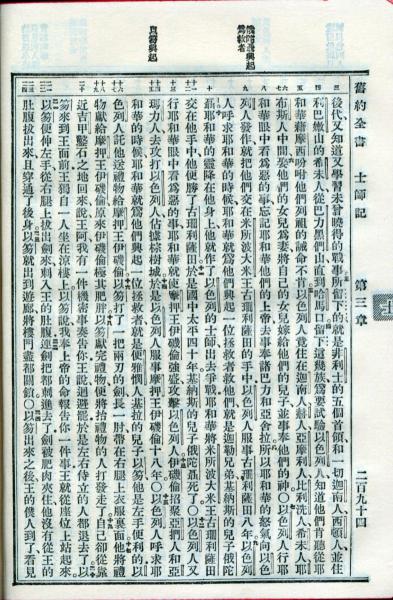 俄陀聶興起
爲救者
以笏興起
舊約全書 士師記 第三章 二百九十四
後代又知道又學習未曾曉得的戰事所留下的就是非利士的五個首領和一切迦南人西頓人並住
利巴嫩山的希未人從巴力黑們山直到哈馬口留下這幾族爲要試驗以色列人知道他們肯聽從耶
和華藉摩西吩咐他們列祖的誡命不肯以色列人竟住在迦南人赫人亞摩利人比利洗人希未人耶
布斯人中間娶他們的女兒爲妻將自己的女兒嫁給他們的兒子並事奉他們的神○以色列人行耶
和華眼中看爲惡的事忘記耶和華他們的上帝去事奉諸巴力和亞舍拉所以耶和華的怒氣向以色
列人發就把他們交在米所波大米王古珊利薩田的手中以色列人服事古珊利薩田八年以色列
人呼求耶和華的時候耶和華就爲他們興起一位拯救者救他們就是迦勒兄弟基納斯的兒子俄陀
聶耶和華的靈降在他身上他就作了以色列的士師出去爭戰耶和華將米所波大米王古珊利薩田
交在他手中他便勝了古珊利薩田於是國中太平四十年基納斯的兒子俄陀聶死了○以色列人又
行耶和華眼中看爲惡的事耶和華就使摩押王伊磯倫強盛攻擊以色列人伊磯倫招聚亞捫人和亞
瑪力人去攻打以色列人佔據棕樹城於是以色列人服事摩押王伊磯倫十八年○以色列人呼求耶
和華的時候耶和華就爲他們興起一位拯救者就是便雅憫人基拉的兒子以笏他是左手便利的以
色列人託他送禮物給摩押王伊磯倫以笏打了一把兩刃的劍長一肘帶在右腿上衣服裏面他將禮
物獻給摩押王伊磯倫原來伊磯倫極其肥胖以笏獻完禮物便將抬禮物的人打發走了自己卻從靠
近吉甲鑿石之地回來說王阿我有一件機密事奏告你王說迴避罷於是左右侍立的人都退去了以
笏來到王面前王獨自一人坐在涼樓上以笏說我奉上帝的命報告你一件事王就從座位上站起來
以笏便伸左手從右腿上拔出劍來刺入王的肚腹連劍把都刺進去了劍被肥肉夾住他沒有從王的
肚腹拔出來且穿通了後身以笏就出到遊廊將樓門盡都關鎖○以笏出來之後王的僕人到了看見